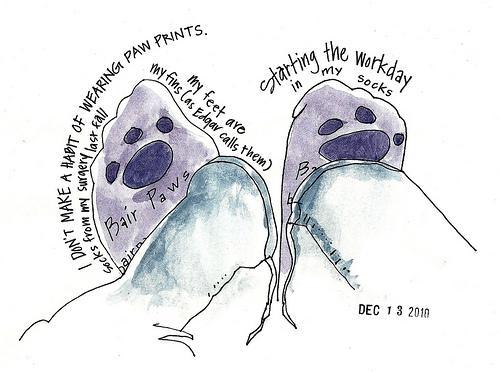 I DON'T MAKE A HABIT OF WEARING PAW PRINTS.
socks from my surgery last fall
my feet are
my fins (as Edgar calls them)
Starting the workday
in my socks
Bair Paws
bairp
Ba
DEC 13 2010